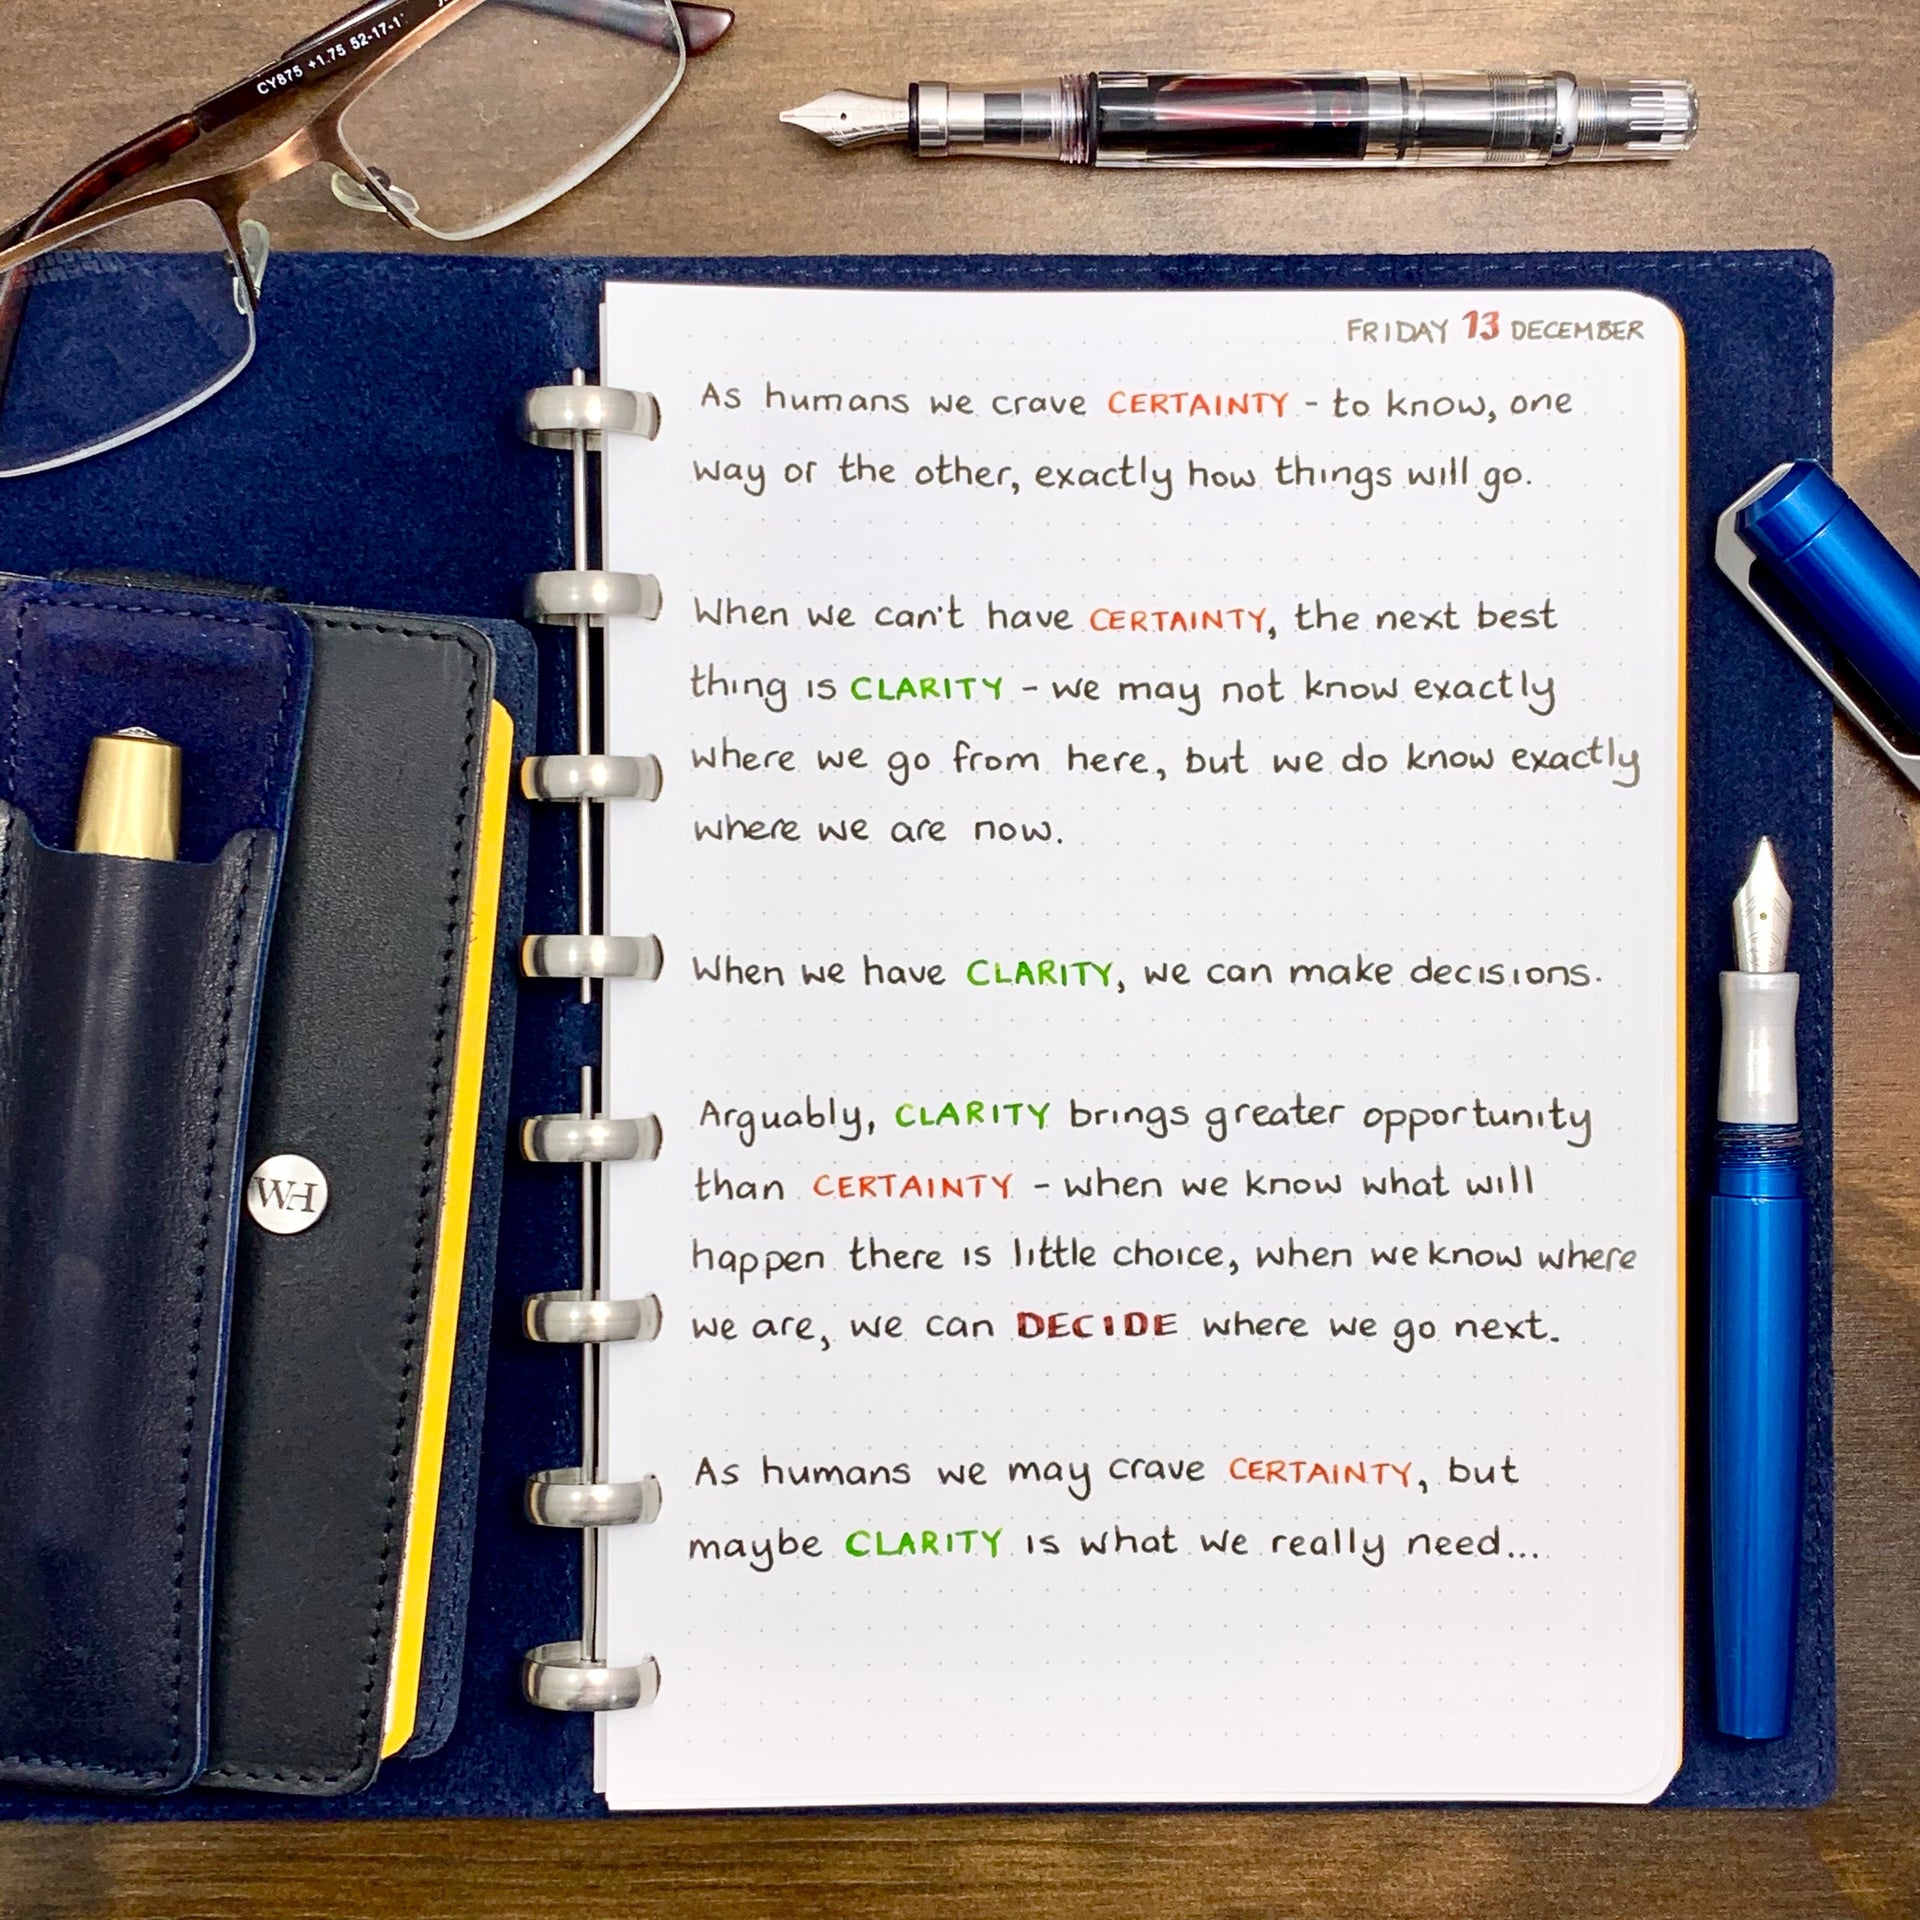 CY875 +1.75 52-17-1
FRIDAY 13 DECEMBER
As humans we crave CERTAINTY - to know, one
way or the other, exactly how things will go.
When we can't have CERTAINTY, the next best
thing is CLARITY - we may not know exactly
where we go from here, but we do know exactly
where we are now.
When we have CLARITY, we can make decisions.
Arguably, CLARITY brings greater opportunity
than CERTAINTY - when we know what will
happen there is little choice, when we know where
we are, we can DECIDE where we go next.
As humans we may crave CERTAINTY, but
maybe CLARITY is what we really need...
WH